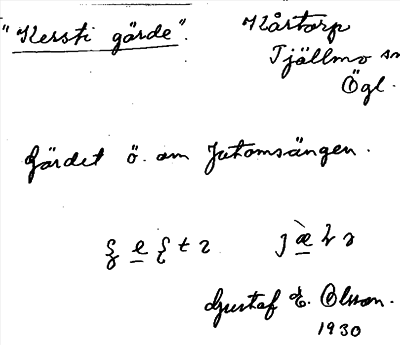 "Kersti gärde".
Kårtorp
Tjällmo sn
Ögl.
Gärdet ö. om Jutomsängen.
Gustaf E. Olsson.
1930